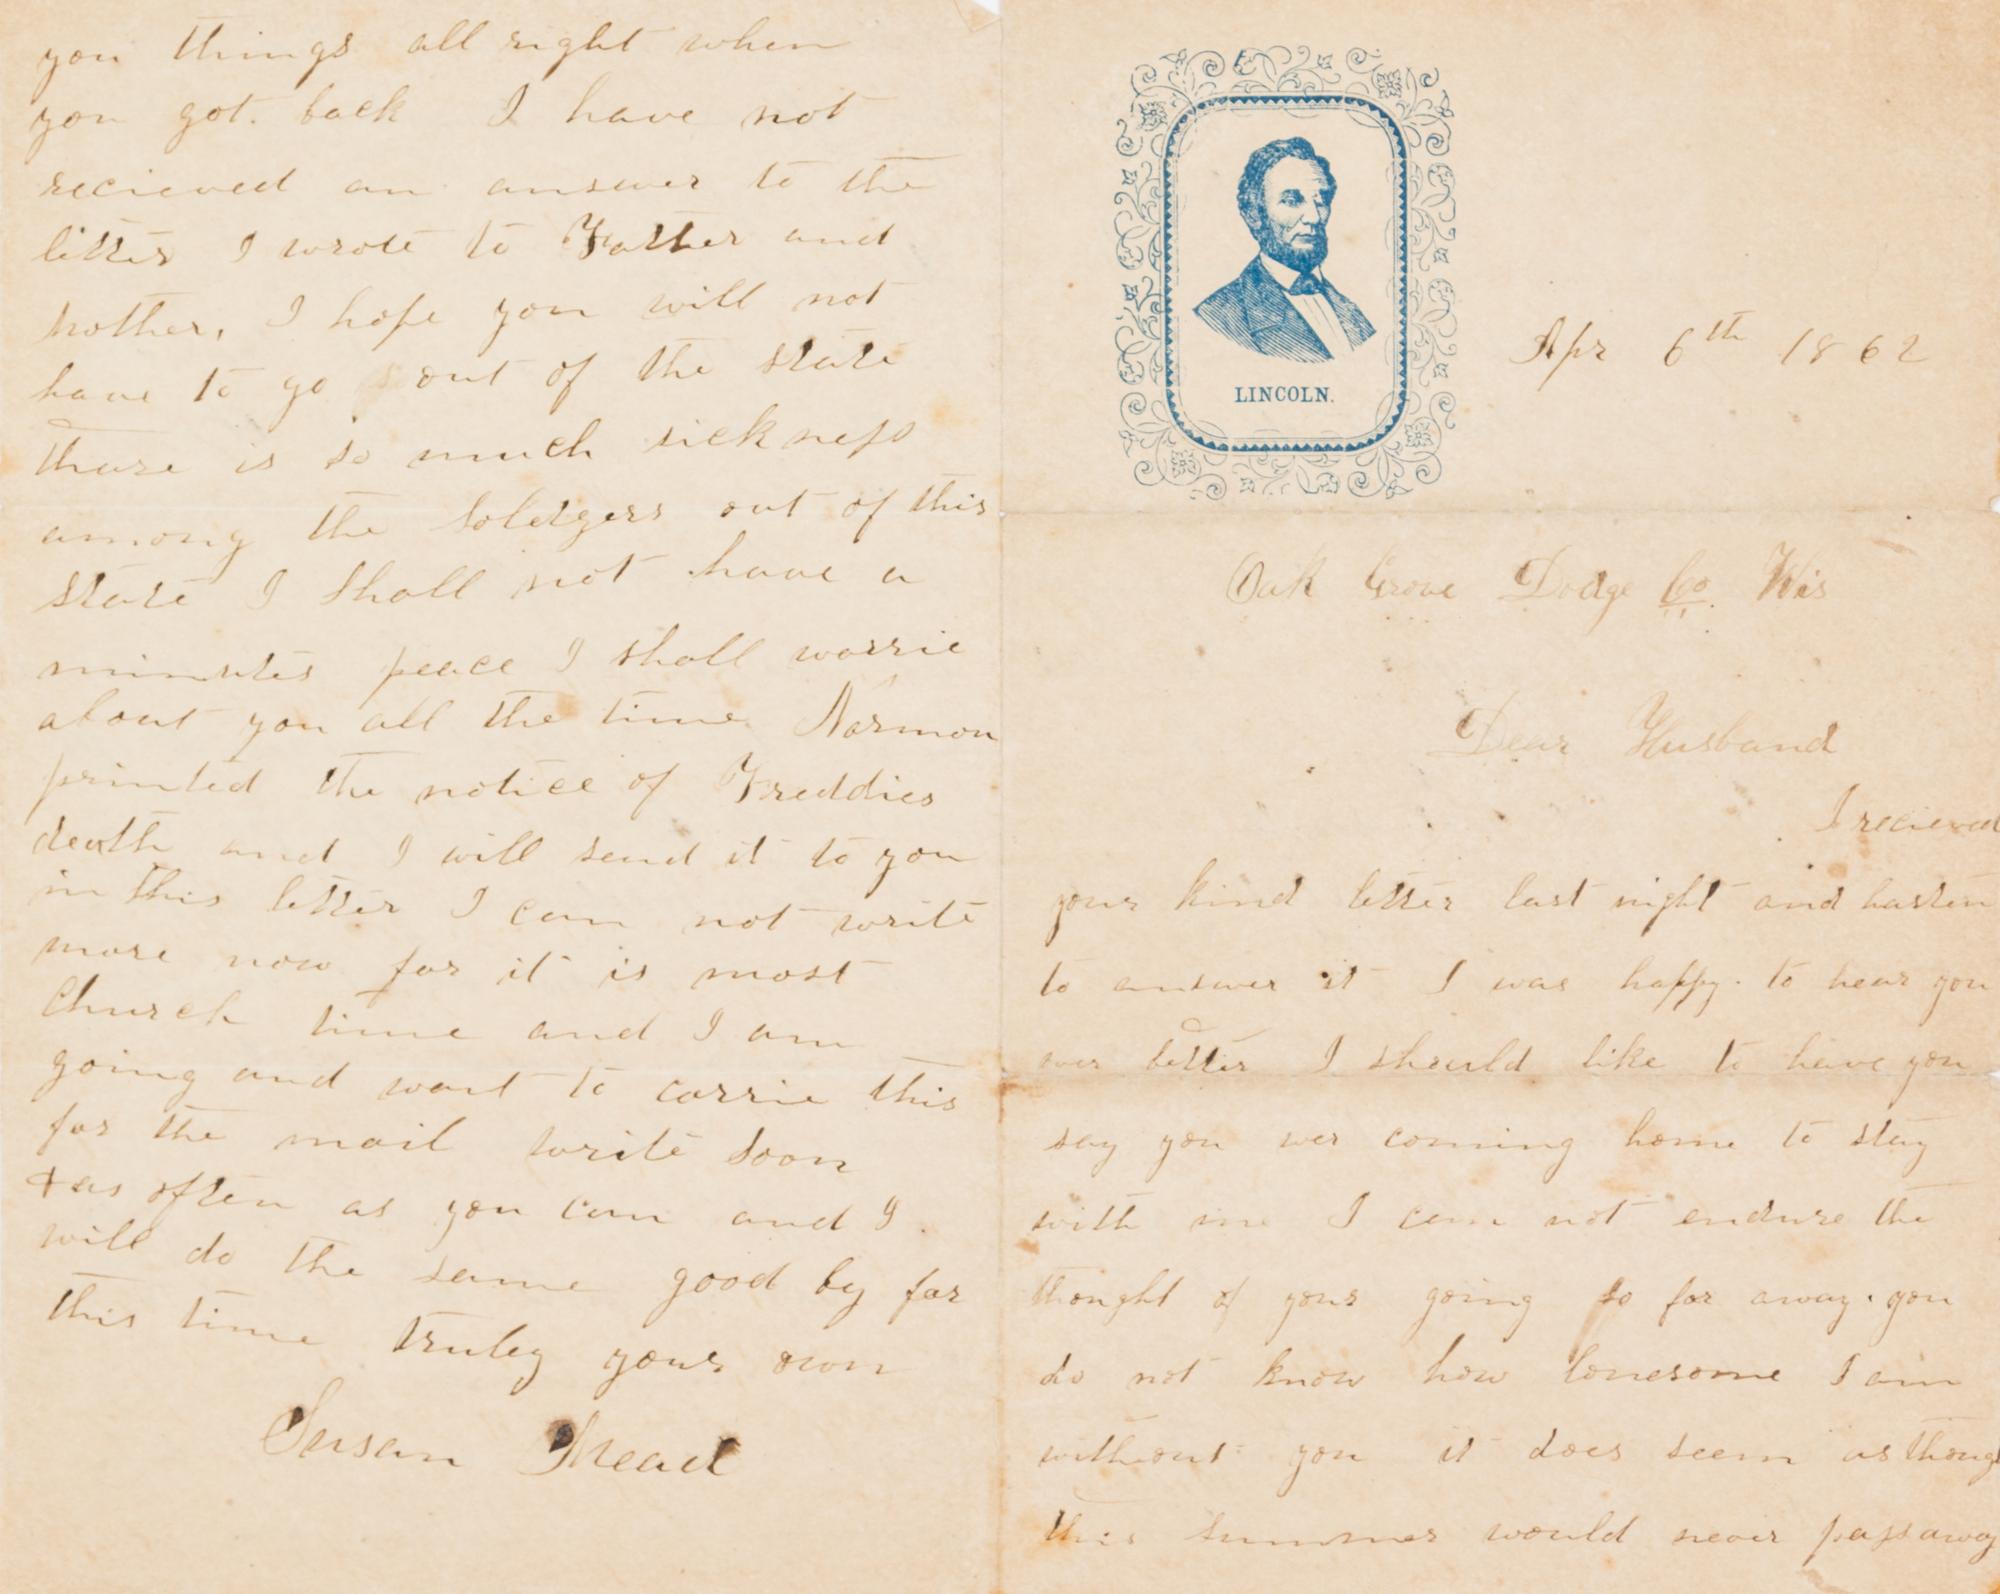 LINCOLN.
Apr 6th 1862
Oak Grove Dodge Co. Wis
Dear Husband
I recieved
your kind letter last night and hasten
to answer it I was happy to hear you
wer better I should like to have you
say you wer coming home to stay
with me I can not endure the
thought of your going so far away. you
do not know how lonesome I am
without you it does seem as though
this summer would never pass away
you things all right when
you got back I have not
recieved an answer to the
letter I wrote to Father and
Mother, I hope you will not
have to go out of the state
thare is so much sickness
among the Soldgers out of this
state I shall not have a
minutes peace I shall worrie
about you all the time Norman
printed the notice of Freddies
death and I will send it to you
in this letter I can not write
more now for it is most
Church time and I am
going and want to carrie this
for the mail write soon
& as often as you can and I
will do the same good by for
this time truley your own
Susan Mead